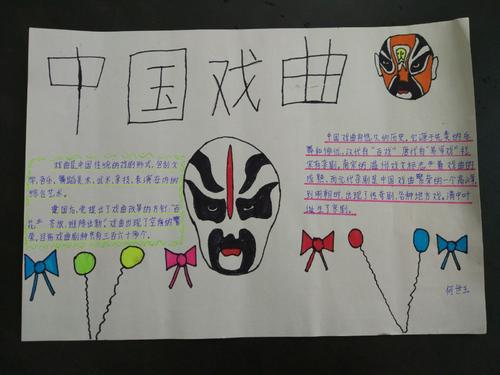 中国戏曲
戏曲是中国传统的戏剧形式,包括文
学、音乐、舞蹈美术、武术、杂技、表演在内的
综合艺术。
建国后,党提出了戏曲改革的方针,"百
花齐放,推陈出新",戏曲出现了空前的繁
荣,目前戏曲剧种共有三百六十多个。
中国戏曲有悠久的历史,它源于先秦的乐
舞和俳优,汉代有"百戏"唐代有"参军戏"
宋有杂剧,南宋的温州戏文标志严着戏曲的
成熟,而元代杂剧是中国戏曲繁荣的一个高峰
到明朝时,出现了传奇剧,各种地方戏,清中叶
诞生了京剧。
何世玉